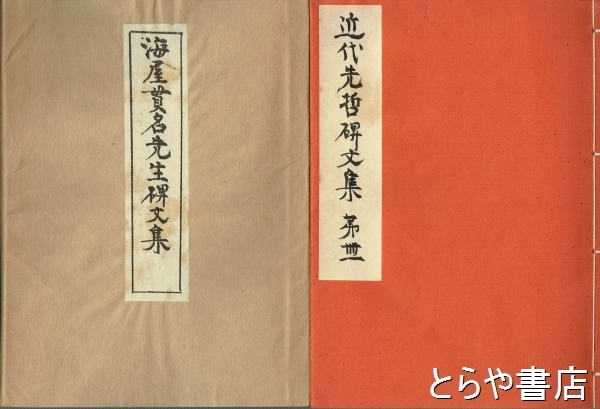 海屋貫名先生碑文集
近代先哲碑文集 第卌一
とらや書店